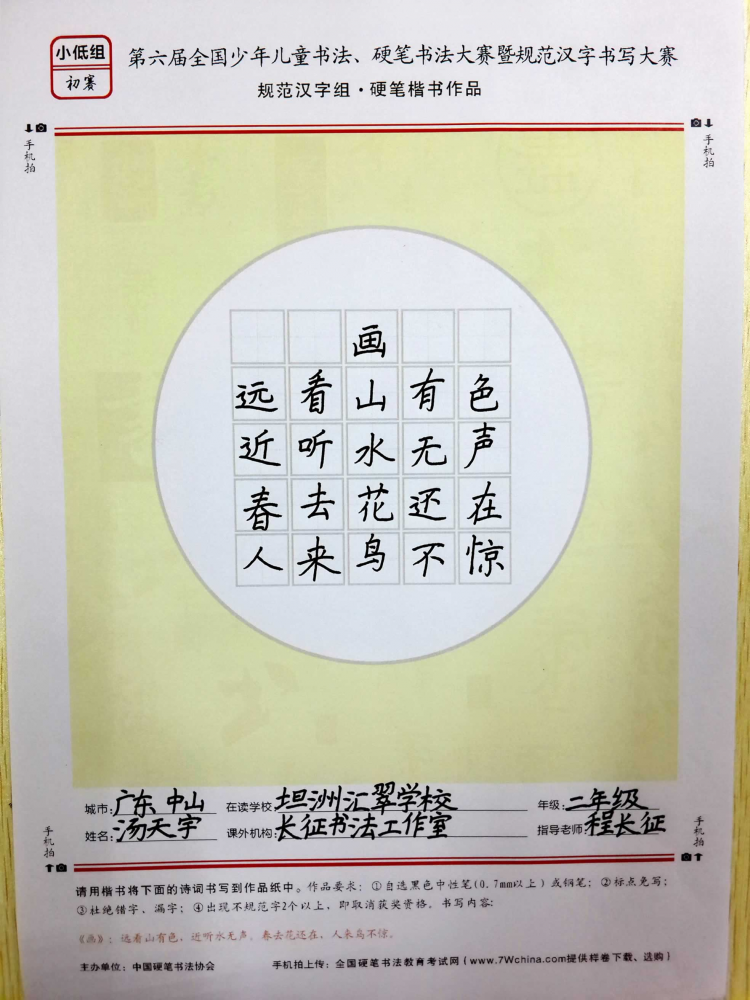 小低组
初赛
第六届全国少年儿童书法、硬笔书法大赛暨规范汉字书写大赛
规范汉字组·硬笔楷书作品
手机拍
手机拍
画
远看山有色
近听水无声
春去花还在
人来鸟不惊
城市:广东 中山 在读学校:坦洲汇翠学校 年级:二年级
姓名:汤天宇 课外机构:长征书法工作室 指导老师:程长征
手机拍
手机拍
请用楷书将下面的诗词书写到作品纸中。作品要求：①自选黑色中性笔(0.7mm以上）或钢笔；②标点免写；
③杜绝错字、漏字；④出现不规范字2个以上，即取消获奖资格。书写内容:
《画》：远看山有色，近听水无声。春去花还在，人来鸟不惊。
主办单位：中国硬笔书法协会 手机拍上传：全国硬笔书法教育考试网（www.7Wchina.com提供样卷下载、选购）